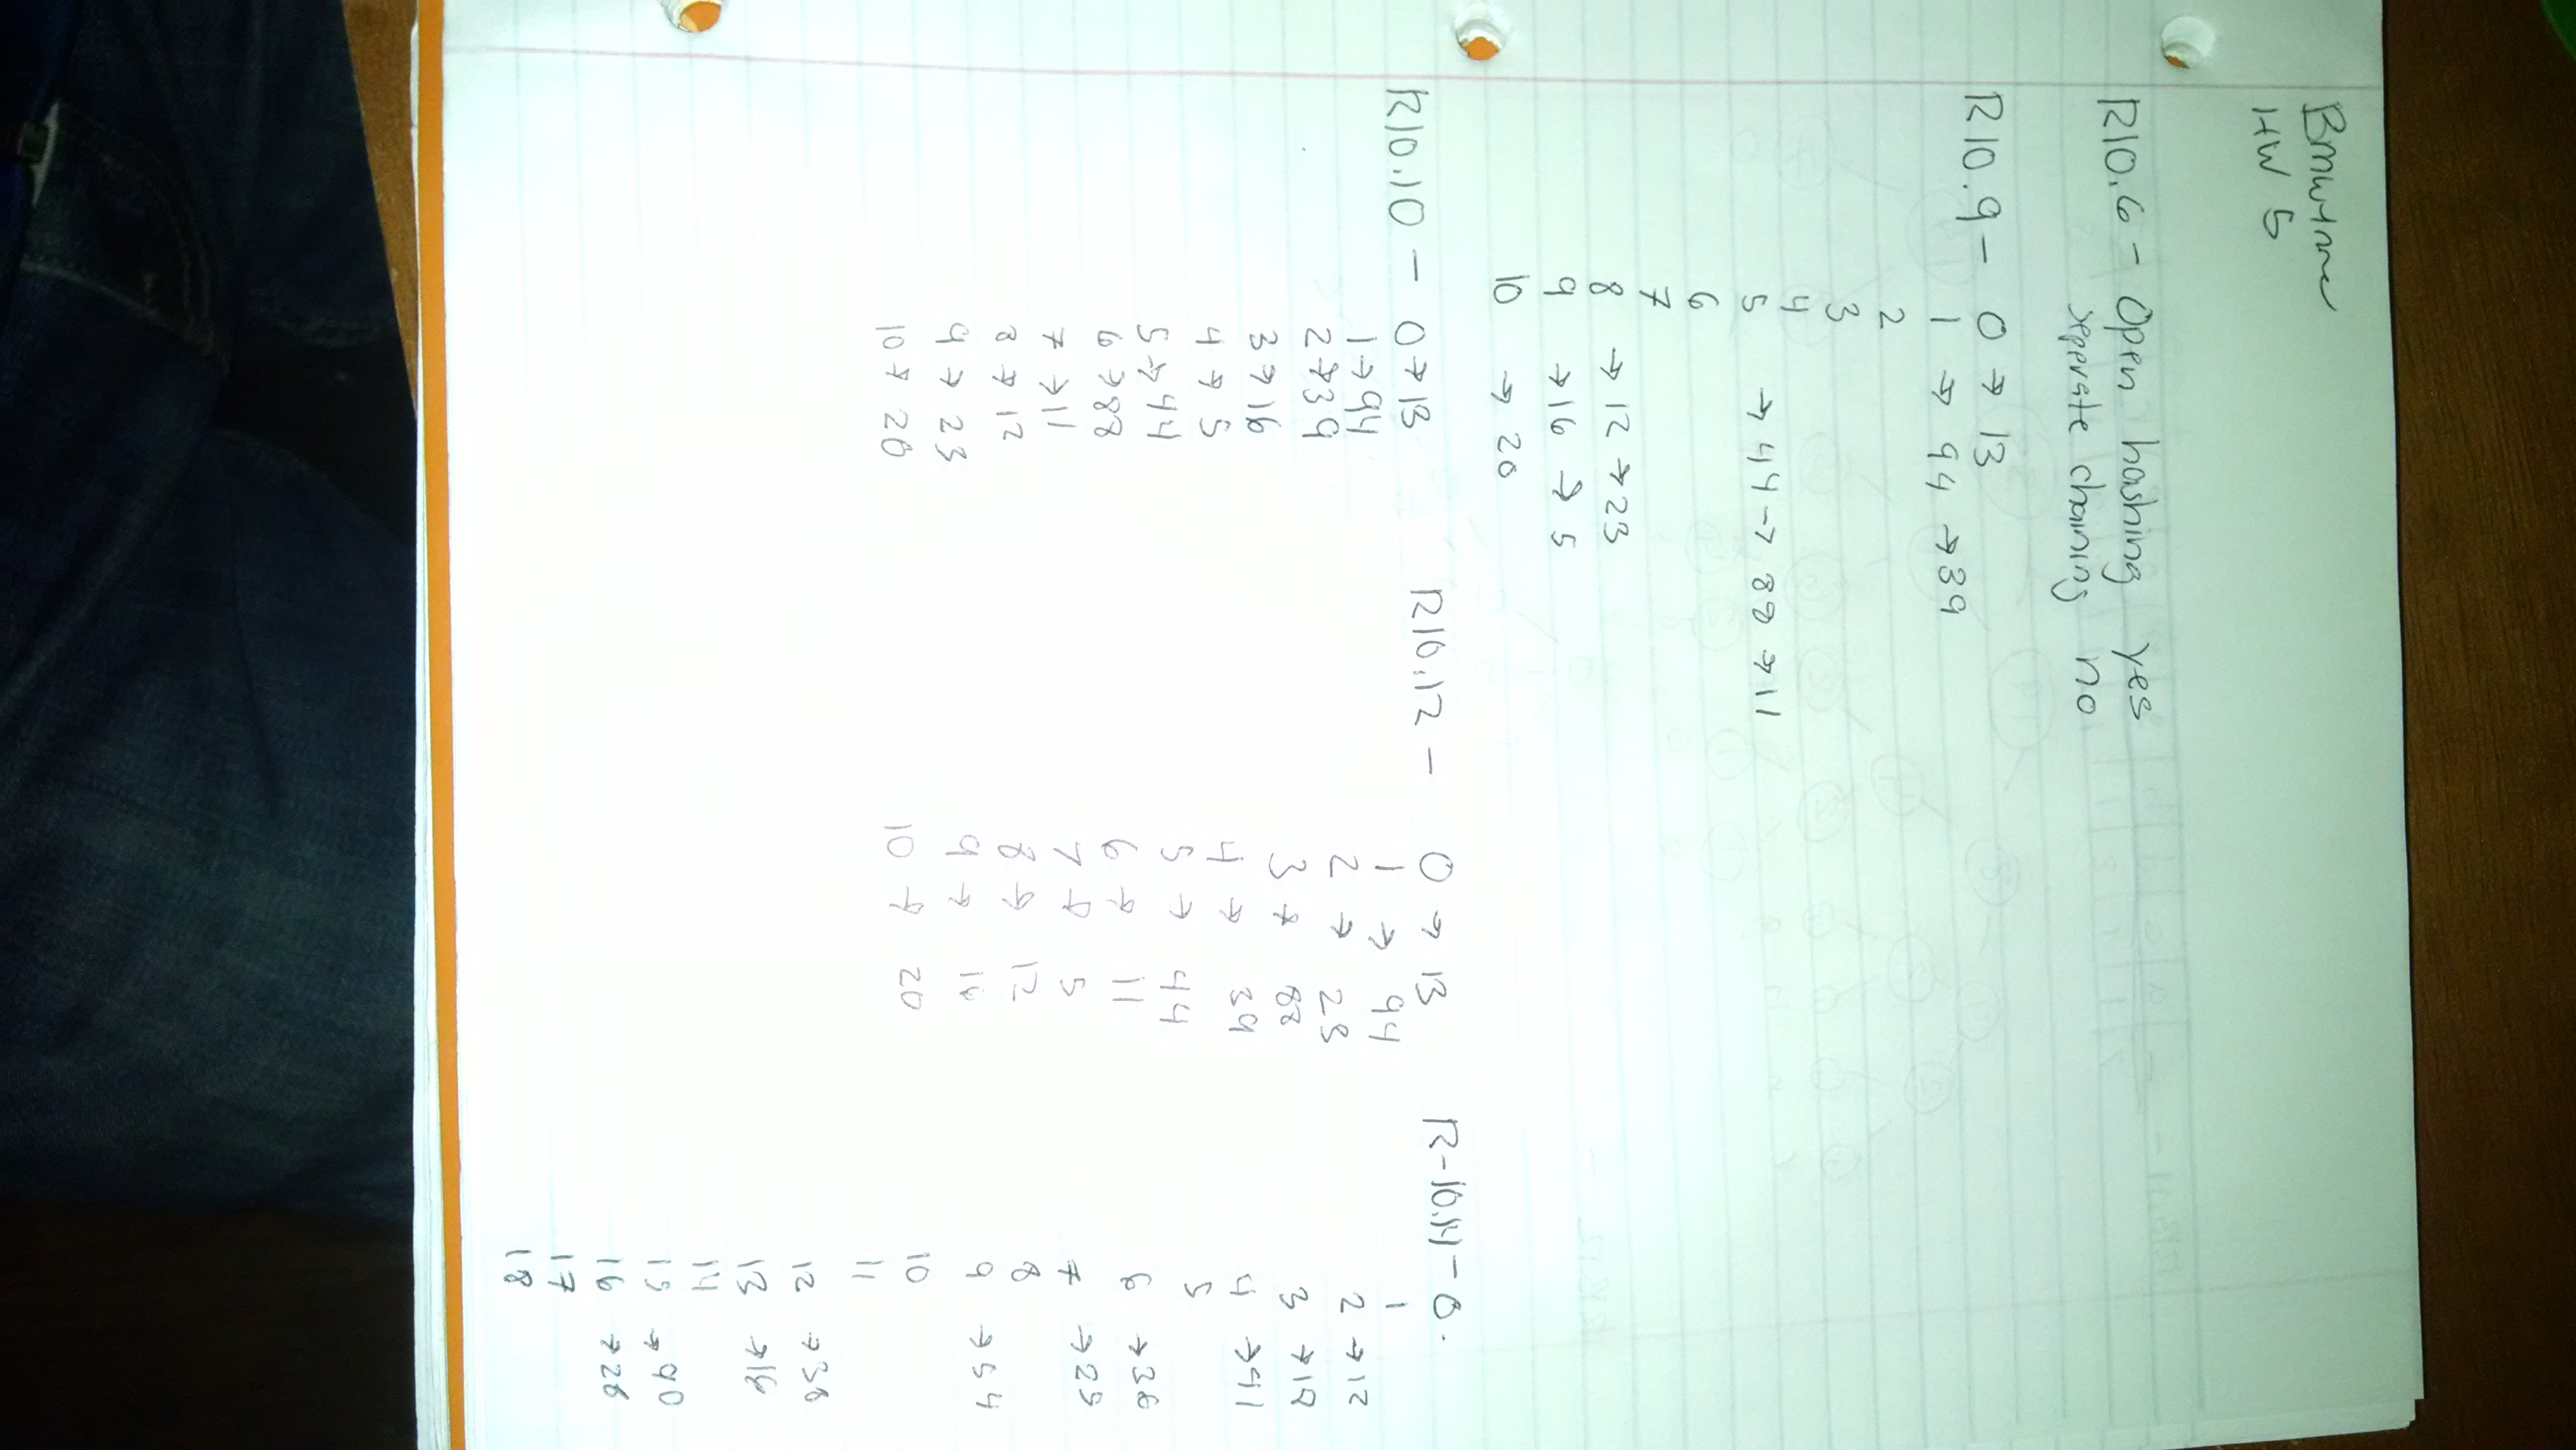 HW 5
R10.6 - Open hashing yes
seperate chaining no
R10.9 - 0 → 13
1 → 94 → 39
2
3
4
5 → 44 → 88 → 11
6
7
8 → 12 → 23
9 → 16 → 5
10 → 20
R10.10 - 0 → 13
1 → 94
2 → 39
3 → 16
4 → 5
5 → 44
6 → 88
7 → 11
8 → 12
9 → 23
10 → 20
R10.12 -
0 → 13
1 → 94
2 → 23
3 → 88
4 → 39
5 → 44
6 → 11
7 → 5
8 → 12
9 → 16
10 → 20
R-10.14 - 0.
1
2 → 12
3 → 18
4 → 41
5
6 → 36
7 → 25
8
9 → 54
10
11
12 → 38
13 → 16
14
15 → 90
16 → 28
17
18